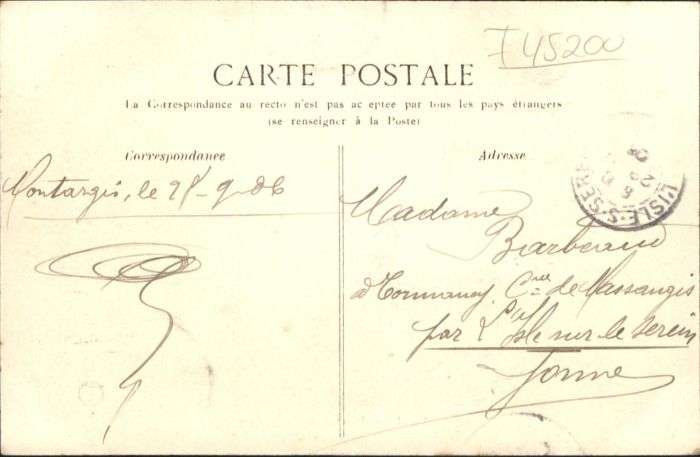 45200
CARTE POSTALE
La Correspondance au recto n'est pas acceptée par tous les pays étrangers
(se renseigner à la Poste)
Correspondance
Adresse
Montargis, le 28-9-06
Madame
Barbeau
à Tormancy Cne de Massangis
par L'Isle sur le Serein
Yonne
L'ISLE-S-SEREIN